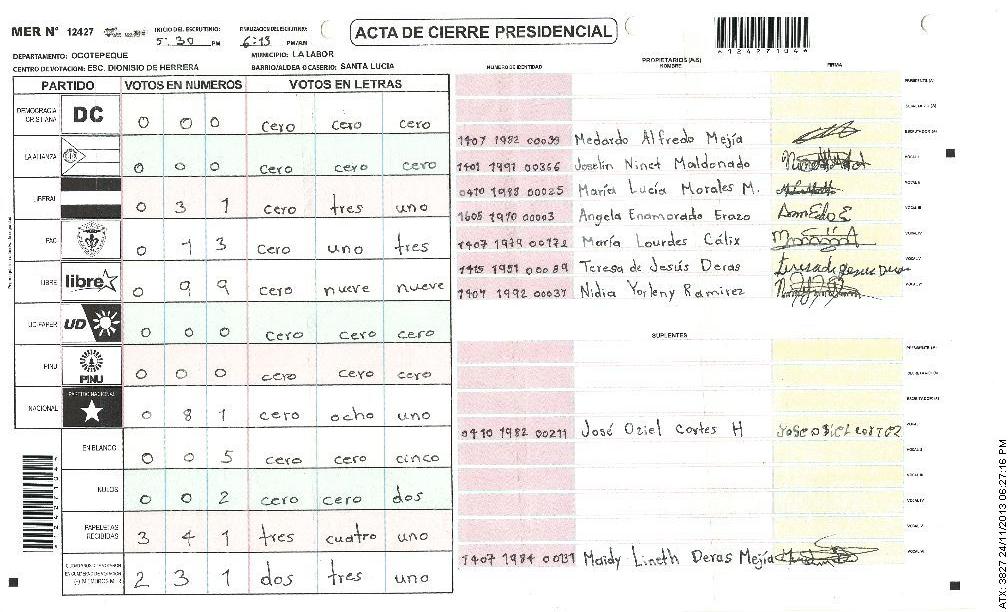 MER N° 12427
INICIO DEL ESCRUTINIO: 5:30 PM
FINALIZACION DEL ESCRUTINIO: 6:13 PM/AM
ACTA DE CIERRE PRESIDENCIAL
DEPARTAMENTO: OCOTEPEQUE
MUNICIPIO: LA LABOR
CENTRO DE VOTACION: ESC. DIONISIO DE HERRERA
BARRIO/ALDEA O CASERIO: SANTA LUCIA
PARTIDO VOTOS EN NUMEROS VOTOS EN LETRAS
DEMOCRACIA CRISTIANA DC 0 0 0 cero cero cero
LA ALIANZA 0 0 0 cero cero cero
LIBERAL 0 3 1 cero tres uno
FAC 0 1 3 cero uno tres
LIBRE libre 0 9 9 cero nueve nueve
UD/FAPER UD 0 0 0 cero cero cero
PINU PINU 0 0 0 cero cero cero
NACIONAL PARTIDO NACIONAL 0 8 1 cero ocho uno
EN BLANCO 0 0 5 cero cero cinco
NULOS 0 0 2 cero cero dos
PAPELETAS RECIBIDAS 3 4 1 tres cuatro uno
2 3 1 dos tres uno
NUMERO DE IDENTIDAD
PROPIETARIOS (AS)
NOMBRE
FIRMA
PRESIDENTE (A)
SECRETARIO (A)
1407 1982 00039 Medardo Alfredo Mejía ESCRUTADOR (A)
1401 1991 00366 Joselin Ninet Maldonado VOCAL I
0410 1988 00025 María Lucía Morales M. VOCAL II
1605 1970 00003 Angela Enamorado Erazo VOCAL III
1407 1979 00172 María Lourdes Cálix VOCAL IV
1415 1951 00089 Teresa de Jesús Deras Teresa de Jesus Deras VOCAL V
1407 1992 00037 Nidia Yorleny Ramirez VOCAL VI
SUPLENTES
PRESIDENTE (A)
SECRETARIO (A)
ESCRUTADOR (A)
0410 1982 00211 José Oziel Cortes H JOSE OSIEL CORTEZ VOCAL I
VOCAL II
VOCAL III
VOCAL IV
VOCAL V
1407 1984 00131 Maidy Lineth Deras Mejía VOCAL VI
ATX: 3827 24/11/2013 06:27:16 PM